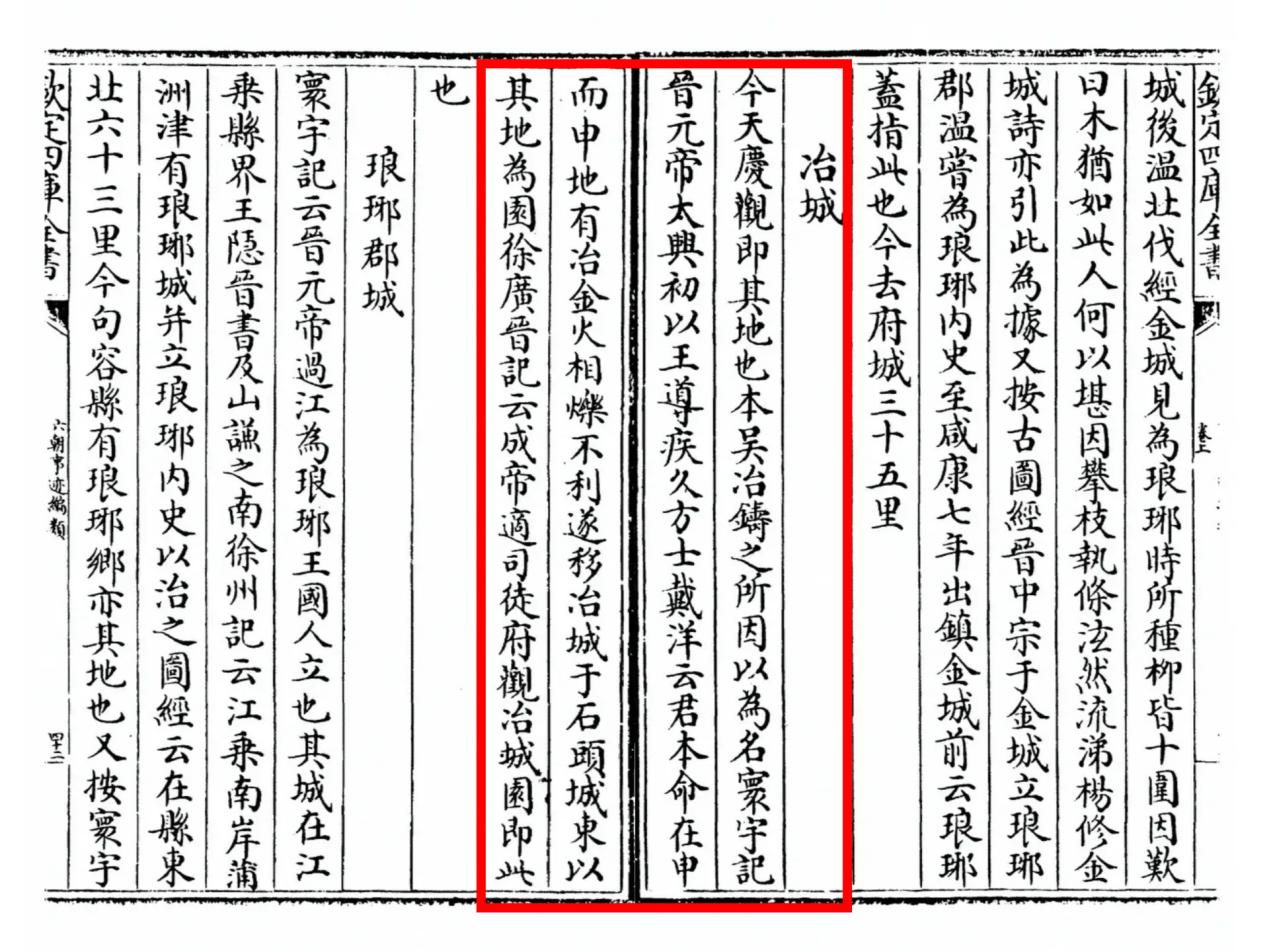 欽定四庫全書
卷上
城後温北伐經金城見為琅琊時所種柳皆十圍因歎
曰木猶如此人何以堪因攀枝執條泫然流涕楊修金
城詩亦引此為據又按古圖經晉中宗于金城立琅琊
郡温嘗為琅琊内史至咸康七年出鎮金城前云琅琊
蓋指此也今去府城三十五里
冶城
今天慶觀即其地也本吳冶鑄之所因以為名寰宇記
晉元帝太興初以王導疾久方士戴洋云君本命在申
而申地有冶金火相爍不利遂移冶城于石頭城東以
其地為園徐廣晉記云成帝適司徒府觀冶城園即此
也
琅琊郡城
寰宇記云晉元帝過江為琅琊王國人立也其城在江
乘縣界王隱晉書及山謙之南徐州記云江乘南岸蒲
洲津有琅琊城并立琅琊内史以治之圖經云在縣東
北六十三里今句容縣有琅琊鄉亦其地也又按寰宇
欽定四庫全書
六朝事迹編類
四十二